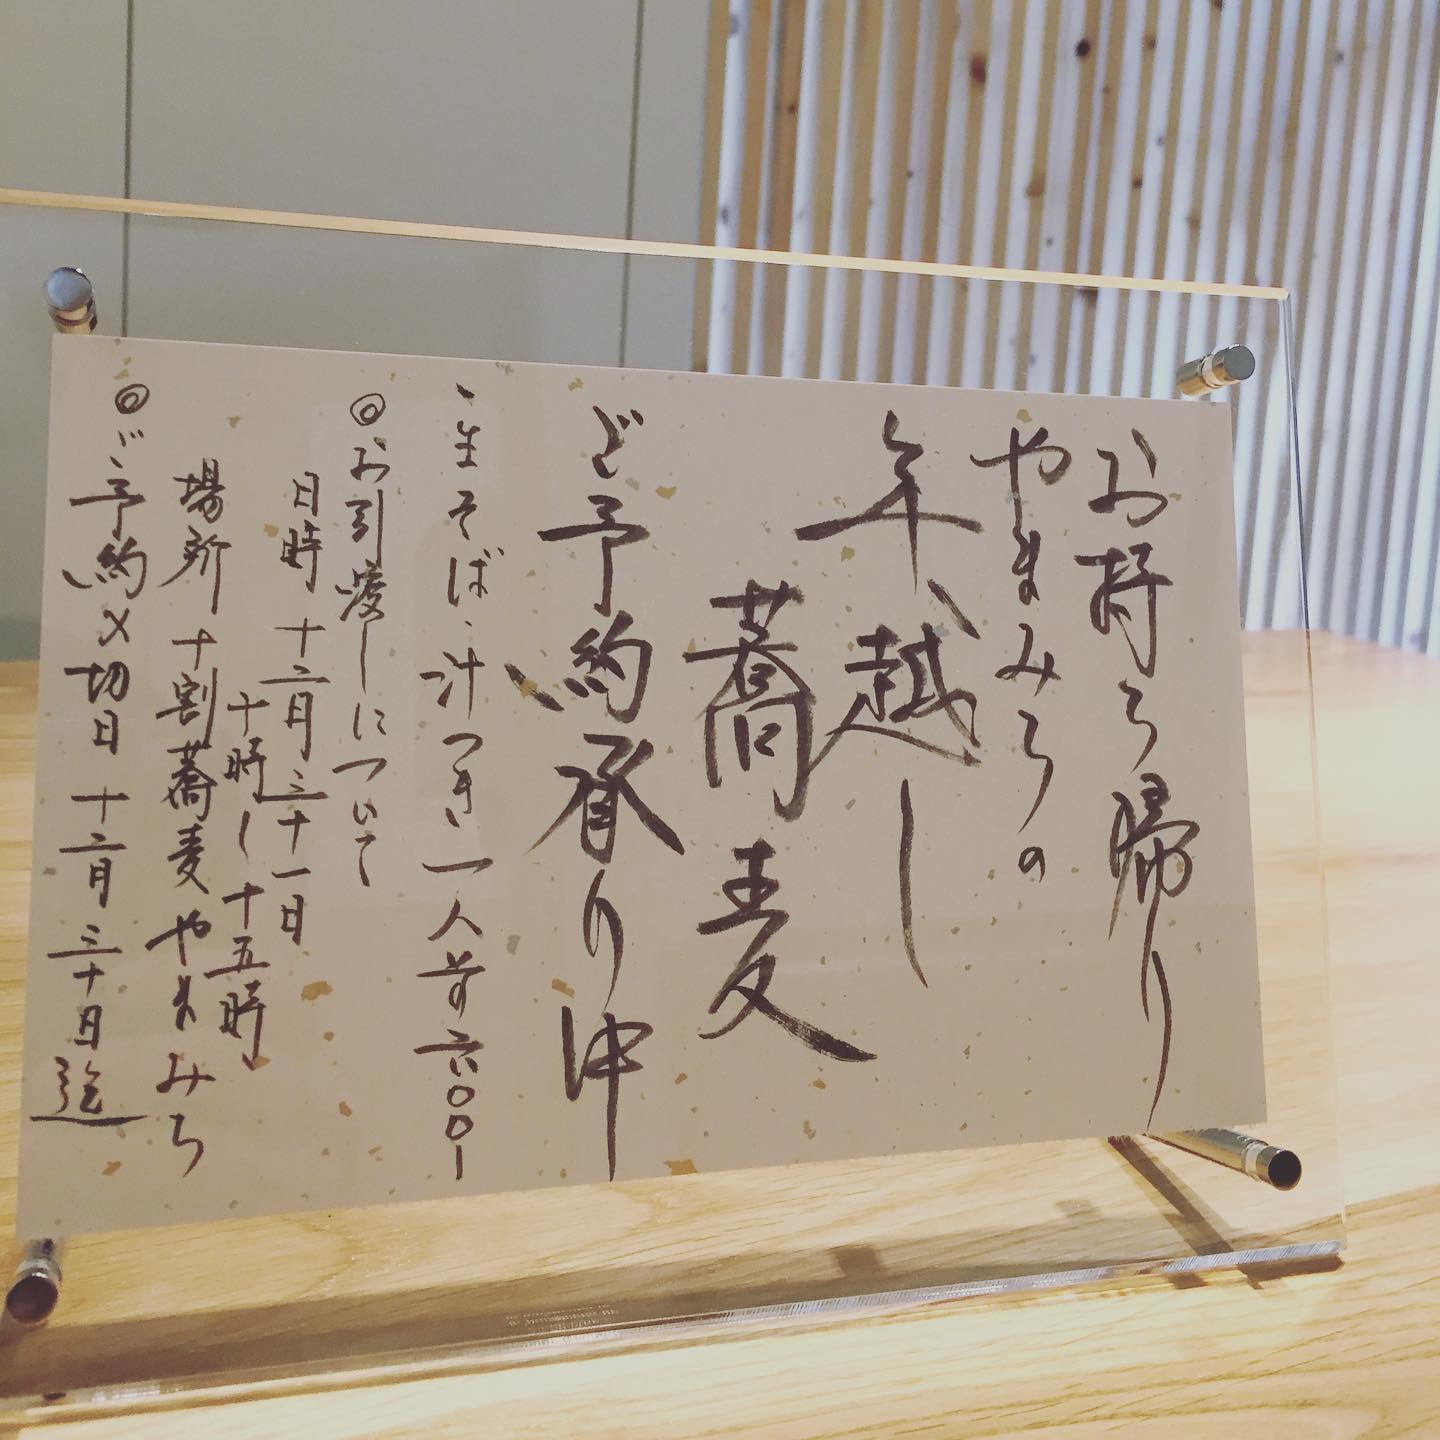 お持ち帰り
やまみちの
年越し
蕎麦
ご予約承り中
、生そば、汁つき 一人前 六〇〇ー
◎お引渡しについて
日時 十二月三十一日
十時〜十五時
場所 十割蕎麦 やまみち
◎ご予約〆切日 十二月三十日迄